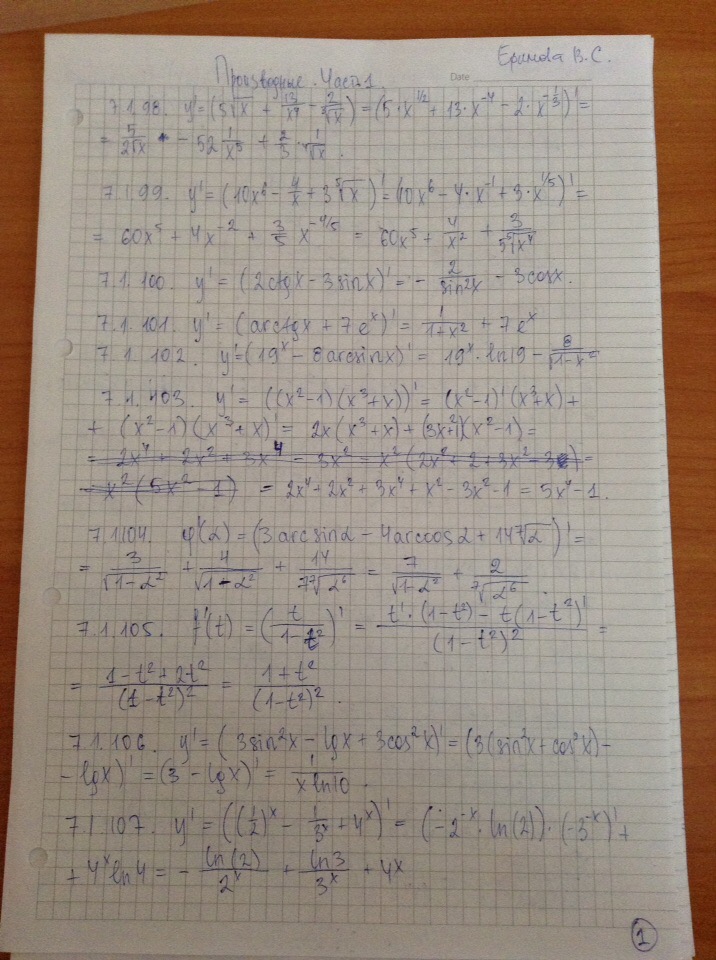 Ерилова В.С.
Производные. Часть 1. Date
7.1.98. y' = (5√x + 13/x⁴ − 2/∛x) = (5·x^{1/2} + 13·x^{-4} − 2·x^{-1/3})' =
= 5/(2√x) − 52 1/x⁵ + 2/3 · 1/√x.
7.1.99. y' = (10x⁶ − 4/x + 3⁵√x)' = (10x⁶ − 4·x^{-1} + 3·x^{1/5})' =
= 60x⁵ + 4x^{-2} + 3/5 x^{-4/5} = 60x⁵ + 4/x² + 3/(5⁵√x⁴)
7.1.100. y' = (2ctgx − 3sinx)' = − 2/sin²x − 3cosx.
7.1.101. y' = (arctgx + 7e^x)' = 1/(1+x²) + 7e^x
7.1.102. y' = (19^x − 8arcsinx)' = 19^x · ln19 − 8/√(1−x²)
7.1.103. y' = ((x²−1)(x³+x))' = (x²−1)'(x³+x) +
+ (x²−1)(x³+x)' = 2x(x³+x) + (3x²+1)(x²−1) =
= 2x⁴ + 2x² + 3x⁴ − 3x² = x²(2x² + 2 + 3x² − 3) =
x²(5x² − 1) = 2x⁴ + 2x² + 3x⁴ + x² − 3x² − 1 = 5x⁴ − 1.
7.1.104. φ'(α) = (3arcsinα − 4arccosα + 14⁷√α)' =
= 3/√(1−α²) + 4/√(1−α²) + 14/(7⁷√α⁶) = 7/√(1−α²) + 2/⁷√α⁶.
7.1.105. f'(t) = (t/(1−t²))' = (t'·(1−t²) − t(1−t²)')/(1−t²)² =
= (1−t²+2t²)/(1−t²)² = (1+t²)/(1−t²)².
7.1.106. y' = (3sin²x − lgx + 3cos²x)' = (3(sin²x + cos²x) −
− lgx)' = (3 − lgx)' = 1/(x ln10).
7.1.107. y' = ((1/2)^x − 1/3^x + 4^x)' = (−2^{-x}·ln(2))·(−3^{-x})' +
+ 4^x ln4 = − ln(2)/2^x + ln3/3^x + 4^x
1